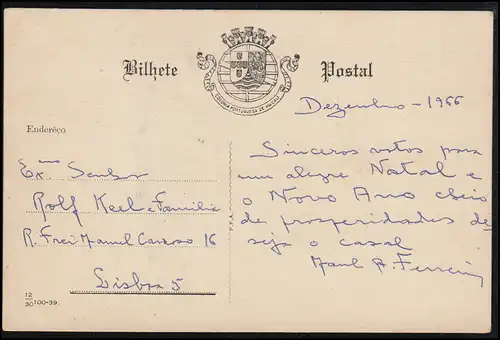 Bilhete Postal
COLONIA PORTUGUESA DE MACAU
Dezembro - 1966
Endereço
Exmo Senhor
Rolf Keel e Familia
R. Frei Manuel Cardoso 16
Lisboa 5
Sinceros votos para
um alegre Natal e
o Novo Ano cheio
de prosperidades de-
seja o casal
A. Ferreira
12
30 100-39.